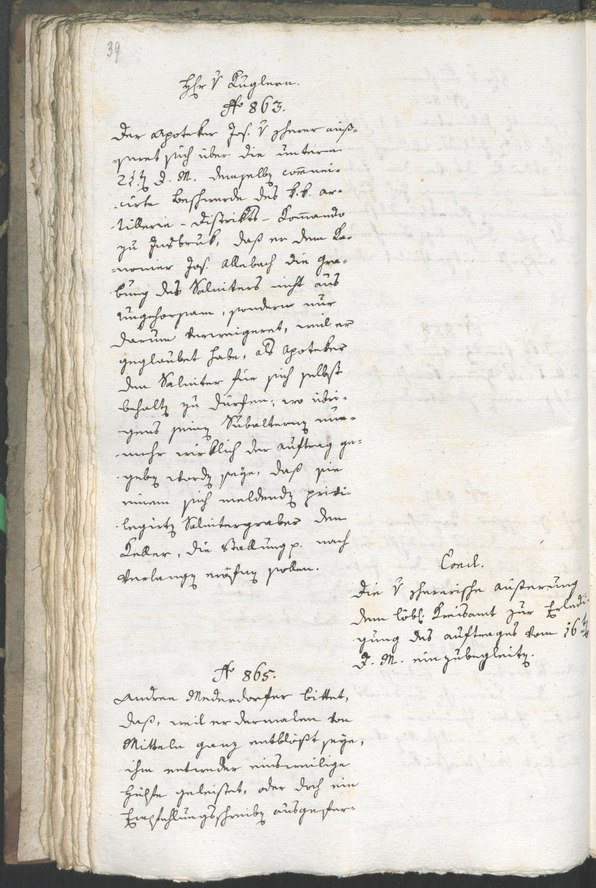 39
Hhr v Kuglern.
No 863.
Der Apoteker Jos. v Scherer äuß-
-seret sich über die unterm
21t d. M. demselbn commu-
-cirte Beschwerde des k. k. ar-
-tillerie-Distrikts-Commando
zu Insbruk, daß er dem Ka-
-nonier Jos. Allebach die Gra-
-bung des Saliters nicht aus
Ungehorsam, sondern nur
darum verweigeret, weil er
geglaubet habe, als Apoteker
den Saliter für sich selbst
behaltn zu dürfen; wo übri-
-gens seinen Subalternen nun-
-mehr wirklich der Auftrag ge-
-gebn wordn seye, daß sie
einem sich meldendn privi-
-legirtn Salitergraber den
Keller, die Stallung p. nach
Verlangn eröfnen sollen.
Concl.
Die v Schererische Äußerung
dem löbl. Kreisamt zur Erledi-
-gung des Auftrages vom 16t
d. M. einzubegleitn.
No 865.
Andree Mederdorfer bittet,
daß, weil er dermalen von
Mitteln ganz entblößt seye,
ihm entweder einsweilige
Hülfe geleistet, oder doch ein
Empfehlungsschreibn ausgefer-